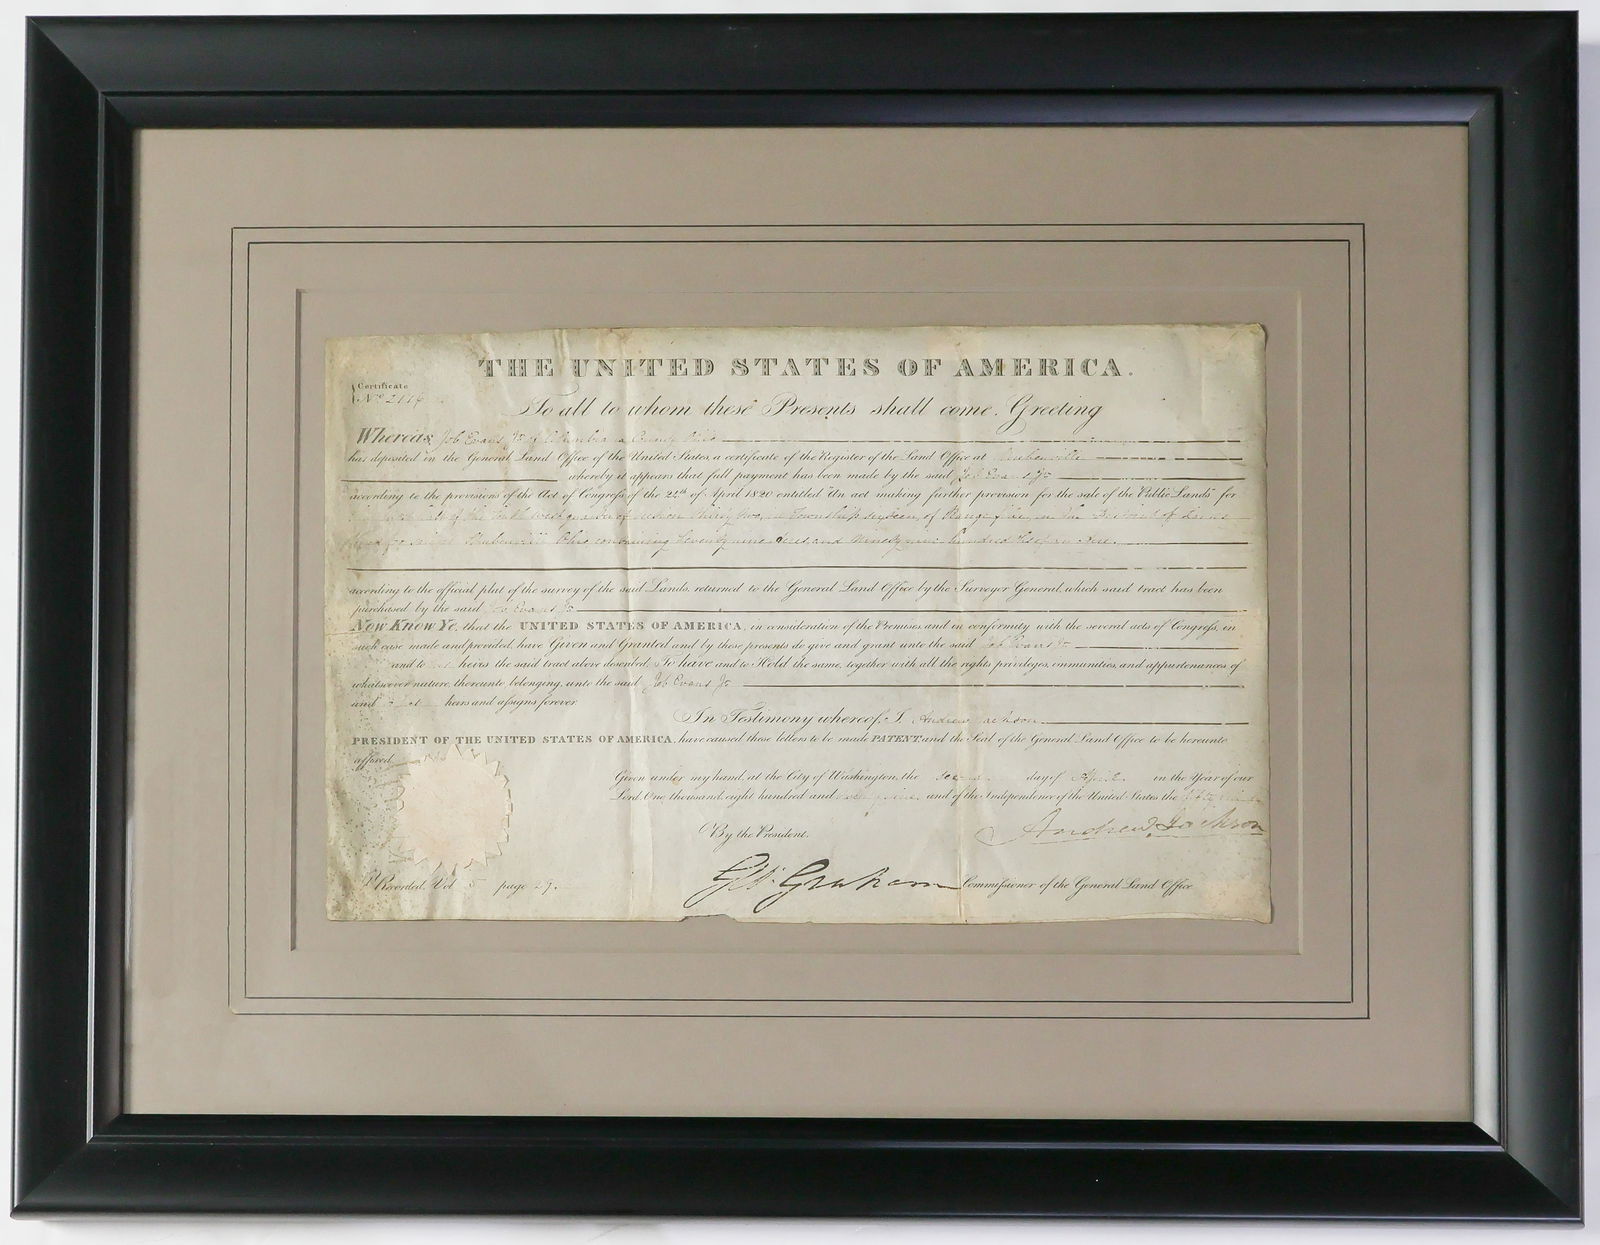 THE UNITED STATES OF AMERICA.
Certificate
No. 2116
To all to whom these Presents shall come, Greeting
Whereas, Job Evans Jr of Columbiana County Ohio
has deposited in the General Land Office of the United States, a certificate of the Register of the Land Office at Steubenville
whereby it appears that full payment has been made by the said Job Evans Jr
according to the provisions of the Act of Congress of the 24th of April 1820 entitled "An act making further provision for the sale of the Public Lands" for
half of the West quarter of section thirty two, in Township sixteen, of Range five, in the District of Lands
Steubenville Ohio containing seventy nine acres and ninety nine hundredths of an Acre.
according to the official plat of the survey of the said Lands, returned to the General Land Office by the Surveyor General, which said tract has been
purchased by the said Job Evans Jr
Now Know Ye, that the UNITED STATES OF AMERICA, in consideration of the Premises, and in conformity with the several acts of Congress, in
such case made and provided, have Given and Granted and by these presents do give and grant unto the said Job Evans Jr
and to heirs the said tract above described, To have and to Hold the same, together with all the rights privileges, immunities, and appurtenances of
whatsoever nature, thereunto belonging, unto the said Job Evans Jr
and heirs and assigns forever.
In Testimony whereof, I, Andrew Jackson
PRESIDENT OF THE UNITED STATES OF AMERICA, have caused these letters to be made PATENT and the Seal of the General Land Office to be hereunto
affixed.
Given under my hand, at the City of Washington, the second day of April in the Year of our
Lord, One thousand, eight hundred and and of the Independence of the United States the fifty third
By the President.
Andrew Jackson
Recorded, Vol 5 page 29.
Geo. Graham Commissioner of the General Land Office